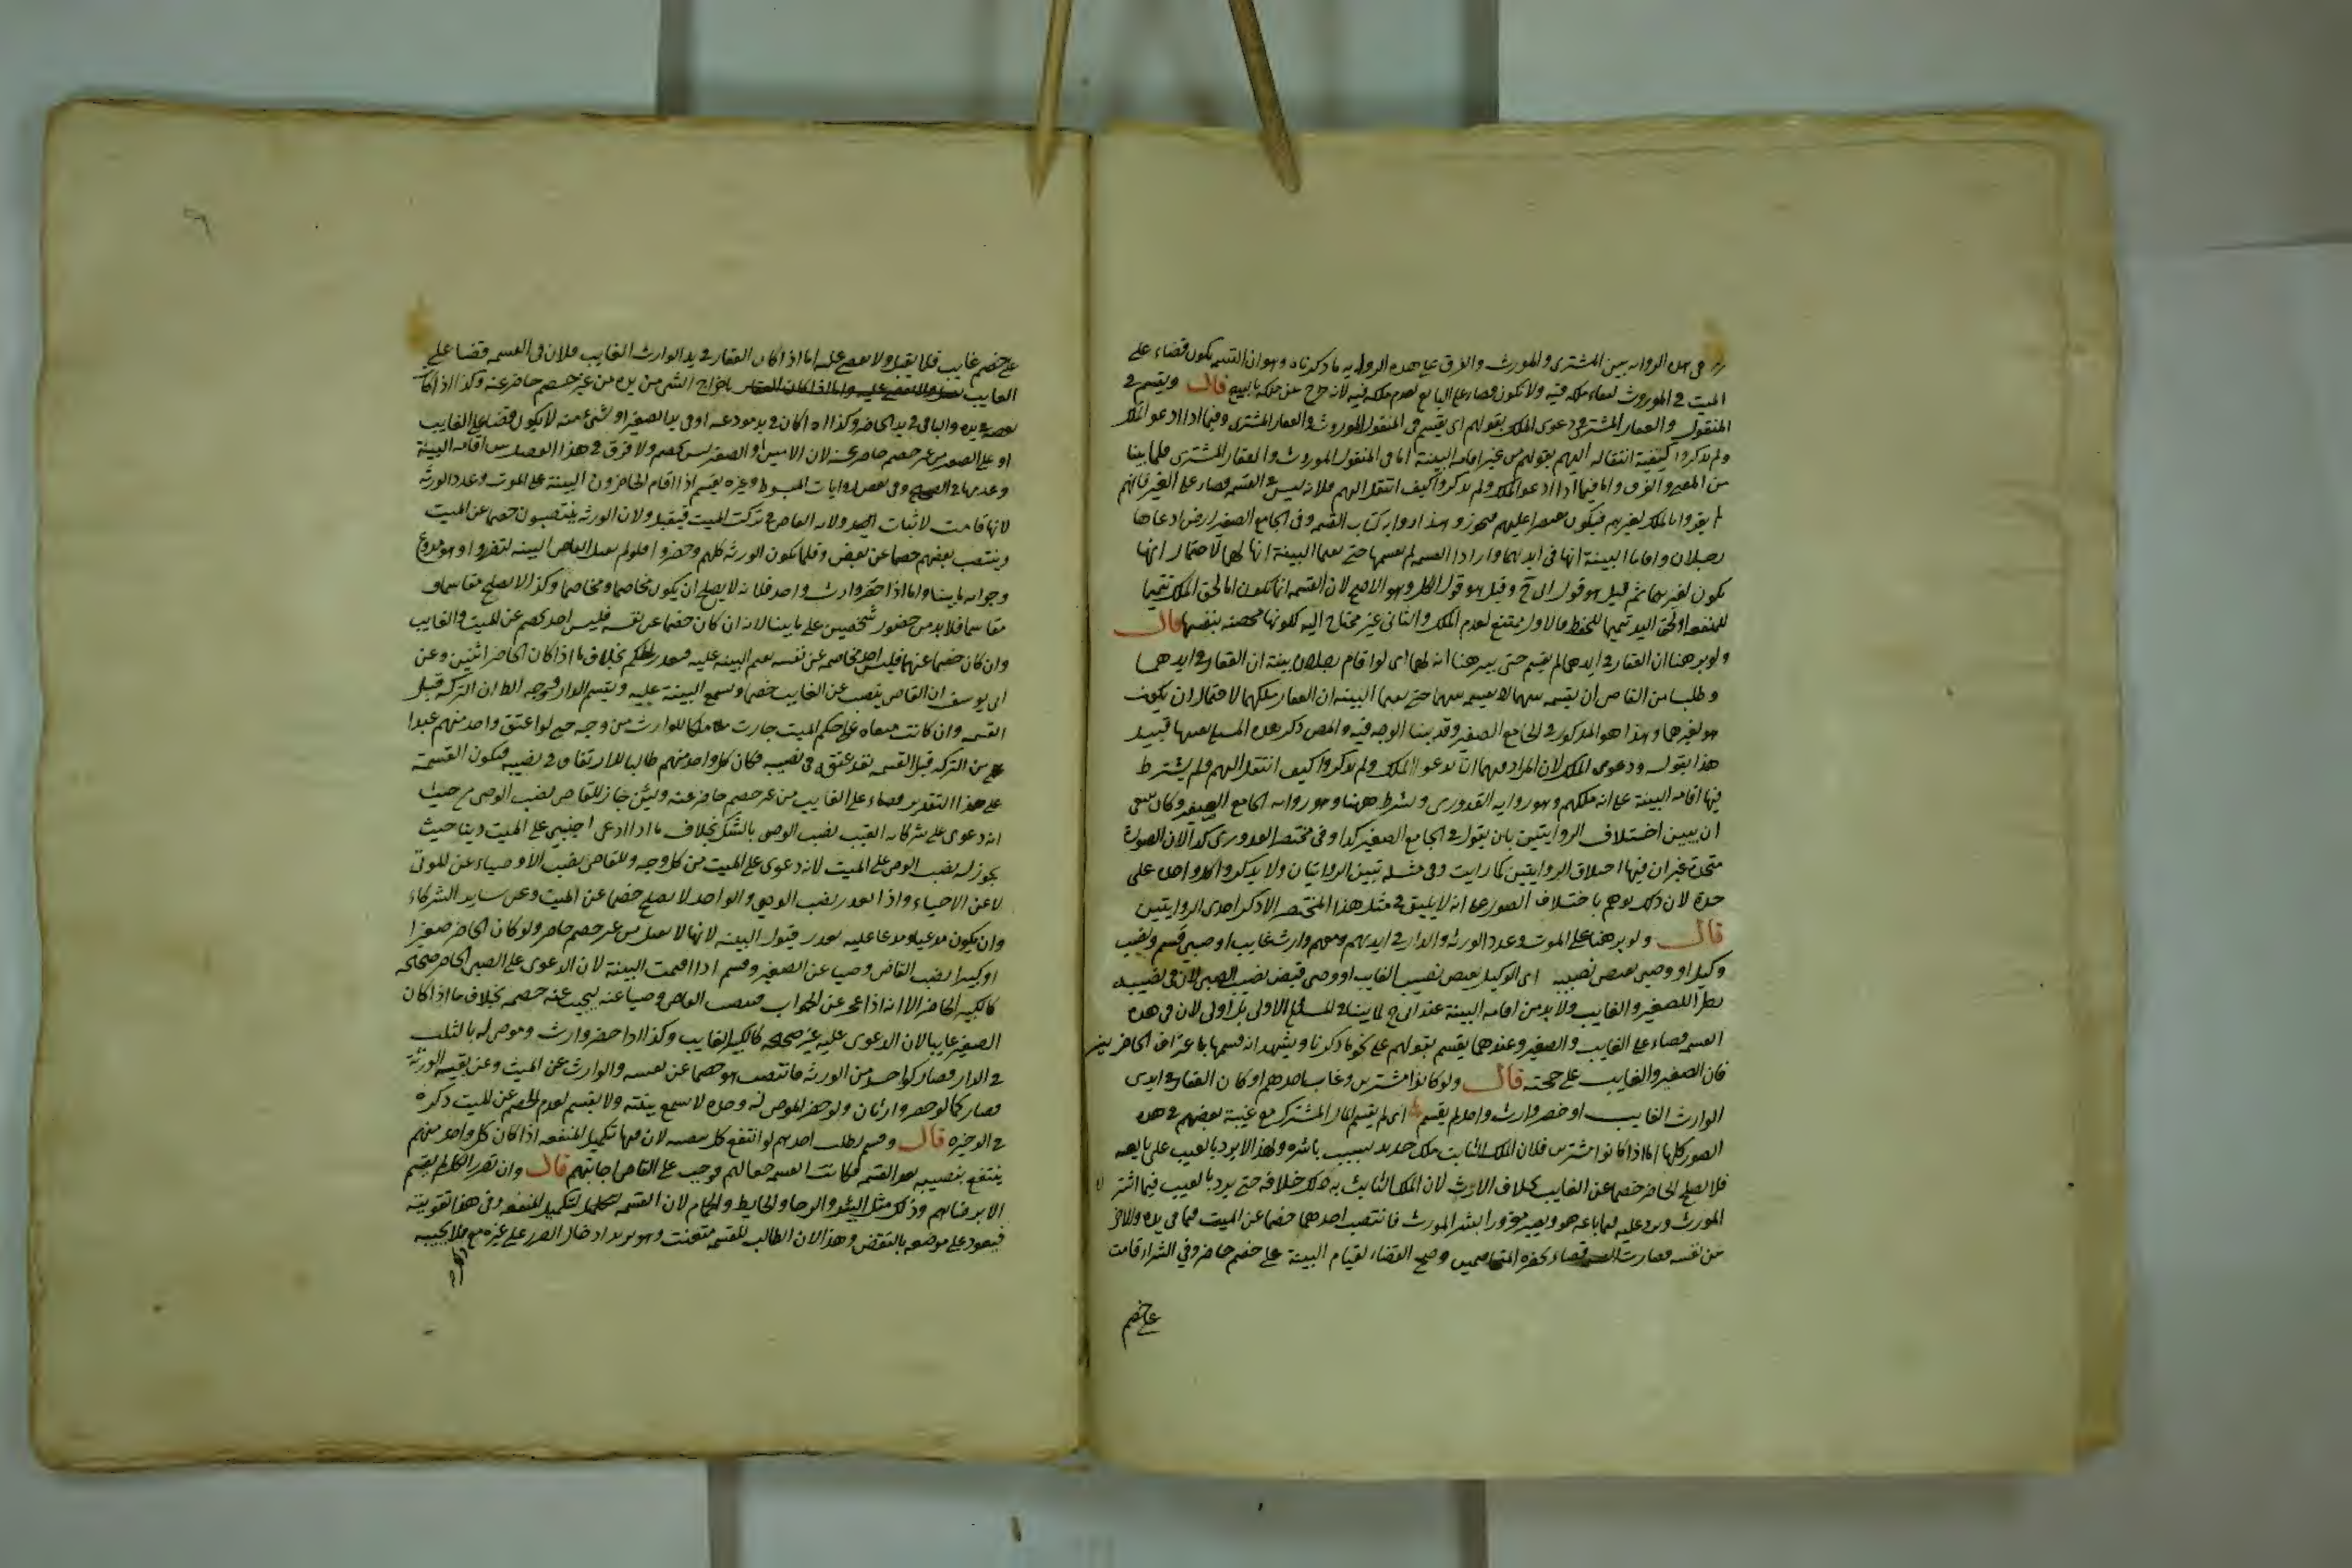 في هذه الرواية بين المشترى والموروث والفرق على هذه الرواية ما ذكرناه وهو ان القسمة يكون قضاء على
الميت في الموروث لبقاء ملكه فيه ولا تكون قضاء على البايع لعدم ملكه فيه لانه خرج عن ملكه بالبيع قال ويقسم في
المنقول والعقار المشترى ودعوى الملك بقولهم اى يقسم في المنقول الموروث والعقار المشترى وفيما اذا ادعو الملك
ولم يذكروا كيفية انتقاله اليهم بقولهم من غير اقامة البينة اما في المنقول الموروث والعقار المشترى فلما بينا
من المعنى والفرق واما فيما اذا ادعو الملك ولم يذكروا كيف انتقل اليهم فلانه ليس في القسمة قضاء على الغير فانهم
لم يقروا بالملك لغيرهم فيكون مقتصرا عليهم فيجوز وهذا رواية كتاب القسمة وفي الجامع الصغير ارض ادعاها
رجلان واقاما البينة انها في ايديهما وارادا القسمة لم يقسمها حتى يقيما البينة انها لهما لاحتمال انها
تكون لغيرهما ثم قيل هو قول ابى ح وقيل هو قول الكل وهو الاصح لان القسمة انما تكون اما لحق الملك تتميما
للمنفعة او لحق اليد تتميما للحفظ فالاول ممتنع لعدم الملك والثانى غير محتاج اليه لكونها محصنة بنفسها قال
ولو برهنا ان العقار في ايديهما لم يقسم حتى يبرهنا انه لهما اى لو اقام رجلان بينة ان العقار في ايديهما
وطلبا من القاضى ان يقسمه بينهما لا يقسمه بينهما حتى يقيما البينة ان العقار ملكهما لاحتمال ان يكون
هو لغيرها وهذا هو المذكور في الجامع الصغير وقد بينا الوجه فيه والمص ذكر هذه المسئلة بعينها قبيل
هذا بقوله ودعوى الملك لان المراد فيهما ان يدعو الملك ولم يذكروا كيف انتقل اليهم ولم يشترط
فيها اقامة البينة على انه ملكهم وهو رواية القدورى وشرط ههنا وهو رواية الجامع الصغير وكان ينبغى
ان يبين اختلاف الروايتين بان يقول في الجامع الصغير كذا وفي مختصر القدورى كذا لان الصورة
متحدة غير ان فيها اختلاف الروايتين كما رايت وفي مثله تبين الروايتان ولا يذكر واكل واحدة على
حدة لان ذلك يوهم باختلاف الصور على انه لا يليق في مثل هذا المختصر الا ذكر احدى الروايتين
قال ولو برهنا على الموت وعدد الورثة والدار في ايديهم ومعهم وارث غايب او صبى قسم ونصب
وكيل او وصى يقبض نصيبه اى الوكيل يقبض نصيب الغايب او وصى قبض نصيب الصبى لان في نصيبه
نظرا للصغير والغايب ولا بد من اقامة البينة عند ابى ح لما بينا في المسئلة الاولى بل اولى لان في هذه
القسمة قضاء على الغايب والصغير وعندهما يقسم بقولهم على نحو ما ذكرنا ويشهد انه قسمها باعتراف الحاضرين
فان الصغير والغايب على حجته قال ولو كانوا مشترين وغاب احدهم او كان العقار في ايدى
الوارث الغايب او حضر وارث واحد لم يقسم اى لم يقسم المال المشترك مع غيبة بعضهم في هذه
الصور كلها اما اذا كانوا مشترين فلان الملك الثابت ملك جديد بسبب باشره ولهذا لا يرد بالعيب على بايعه
فلا يصلح الحاضر خصما عن الغايب بخلاف الارث لان الملك الثابت به ملك خلافة حتى يرد بالعيب فيما اشتراه
المورث ويرد عليه فيما باعه هو ويصير مغرورا بشرا المورث فانتصب احدهما خصما عن الميت فيما في يده والاخر
عن نفسه فصارت القسمة قضاء بحضرة المتخاصمين وصح القضاء لقيام البينة على خصم حاضر وفي الشراء قامت
على خصم
على خصم غايب فلا يقبل ولا يقضى عليه اما اذا كان العقار في يد الوارث الغايب فلان في القسمة قضا على
الغايب باخراج الشى من يده من غير خصم حاضر عنه وكذا اذا كان
بعضه في يده والباقى في يد الحاضر وكذا اذا كان في يد مودعه او في يد الصغير او شى منه لا يكون قضا على الغايب
او على الصغير من غير خصم حاضر عنه لان الامين او الصغير ليس بخصم ولا فرق في هذا الفصل بين اقامة البينة
وعدمها في الصحيح وفي بعض روايات المبسوط وغيره يقسم اذا اقام الحاضرون البينة على الموت وعدد الورثة
لانها قامت لاثبات ولاية القاضى في تركة الميت فيقبل ولان الورثة ينتصبون خصما عن الميت
وينتصب بعضهم خصما عن بعض وقلما يكون الورثة كلهم وحضروا فلو لم يقبل القاضى البينة لتضرروا وهو مدفوع
وجوابه ما بينا واما اذا حضر وارث واحد فلانه لا يصلح ان يكون مخاصما ومخاصما وكذا لا يصلح مقاسما و
مقاسما فلا بد من حضور شخصين على ما بينا لانه ان كان خصما عن نفسه فليس احد يخصم عن الميت والغايب
وان كان خصما عنهما فليس احد يخاصمه عن نفسه يقيم البينة عليه فتعذر الحكم بخلاف ما اذا كان الحاضر اثنين وعن
ابى يوسف ان القاضى ينصب عن الغايب خصما ويسمع البينة عليه ويقسم الدار ووجه الظ ان التركة قبل
القسمة وان كانت مبقاة على حكم الميت جارت ملكا للوارث من وجه حتى لو اعتق واحد منهم عبدا
من التركة قبل القسمة نفذ عتقه في نصيبه فكان كل واحد منهم طالبا للارتفاق في نصيبه فتكون القسمة
على هذا التقدير قضاء على الغايب من غير خصم حاضر عنه ولئن جاز للقاضى نصب الوصى من حيث
انه دعوى على شركايه الغيب نصب الوصى بالشك بخلاف ما اذا ادعى اجنبى على الميت دينا حيث
يجوز له نصب الوصى على الميت لانه دعوى على الميت من كل وجه وللقاضى نصب الاوصياء عن الموتى
لا عن الاحياء واذا تعذر نصب الوصى والواحد لا يصلح خصما عن الميت وعن ساير الشركاء
وان يكون مدعيا ومدعا عليه تعذر قبول البينة لانها لا تقبل من غير خصم حاضر ولو كان الحاضر صغيرا
او كبيرا نصب القاضى وصيا عن الصغير وقسم اذا اقيمت البينة لان الدعوى على الصبى الحاضر صحيحة
كالكبير الحاضر الا انه اذا عجز عن الجواب فينصب القاضى وصيا عنه ليجيب عنه خصمه بخلاف ما اذا كان
الصغير غايبا لان الدعوى عليه غير صحيحة كالكبير الغايب وكذا اذا حضر وارث وموصى له بالثلث
في الدار فصار كواحد من الورثة فانتصب هو خصما عن نفسه والوارث عن الميت وعن بقية الورثة
فصار كما لو حضر وارثان ولو حضر الموصى له وحده لا تسمع بينته ولا يقسم لعدم الخصم عن الميت ذكره
في الوجيزة قال وقسم بطلب احدهم لو انتفع كل بنصيبه لان فيها تكميل المنفعة اذا كان كل واحد منهم
ينتفع بنصيبه بعد القسمة فكانت القسمة حقا لهم فوجب على القاضى اجابتهم قال وان تضرر الكل لم يقسم
الا برضاهم وذلك مثل البئر والرحا والحايط والحمام لان القسمة لتكميل المنفعة وفي هذا تفويته
فيعود على موضوعه بالنقض وهذا لان الطالب للقسمة متعنت وهو يريد ادخال الضرر على غيره مع فلا يجيبه